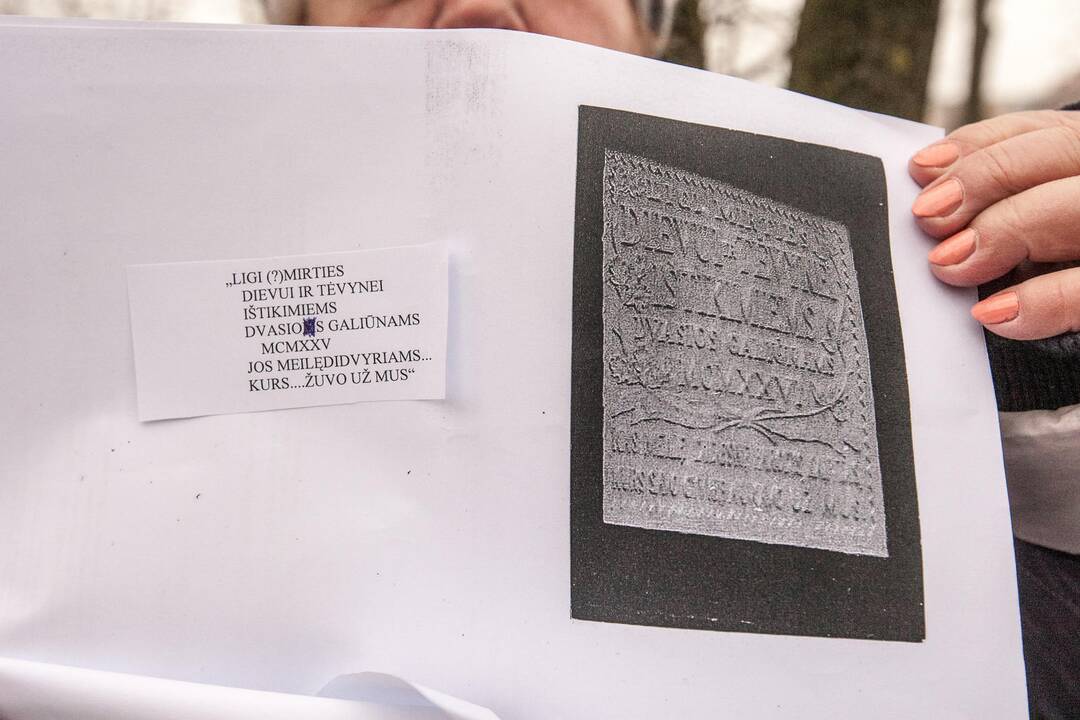 „LIGI (?)MIRTIES
DIEVUI IR TĖVYNEI
IŠTIKIMIEMS
DVASIOS GALIŪNAMS
MCMXXV
JOS MEILĘDIDVYRIAMS...
KURS....ŽUVO UŽ MUS“
LIGI MIRTIES
DIEVUI TĖVYNEI
IŠTIKIMIEMS
DVASIOS GALIŪNAMS
MCMXXV
UŽ MUS